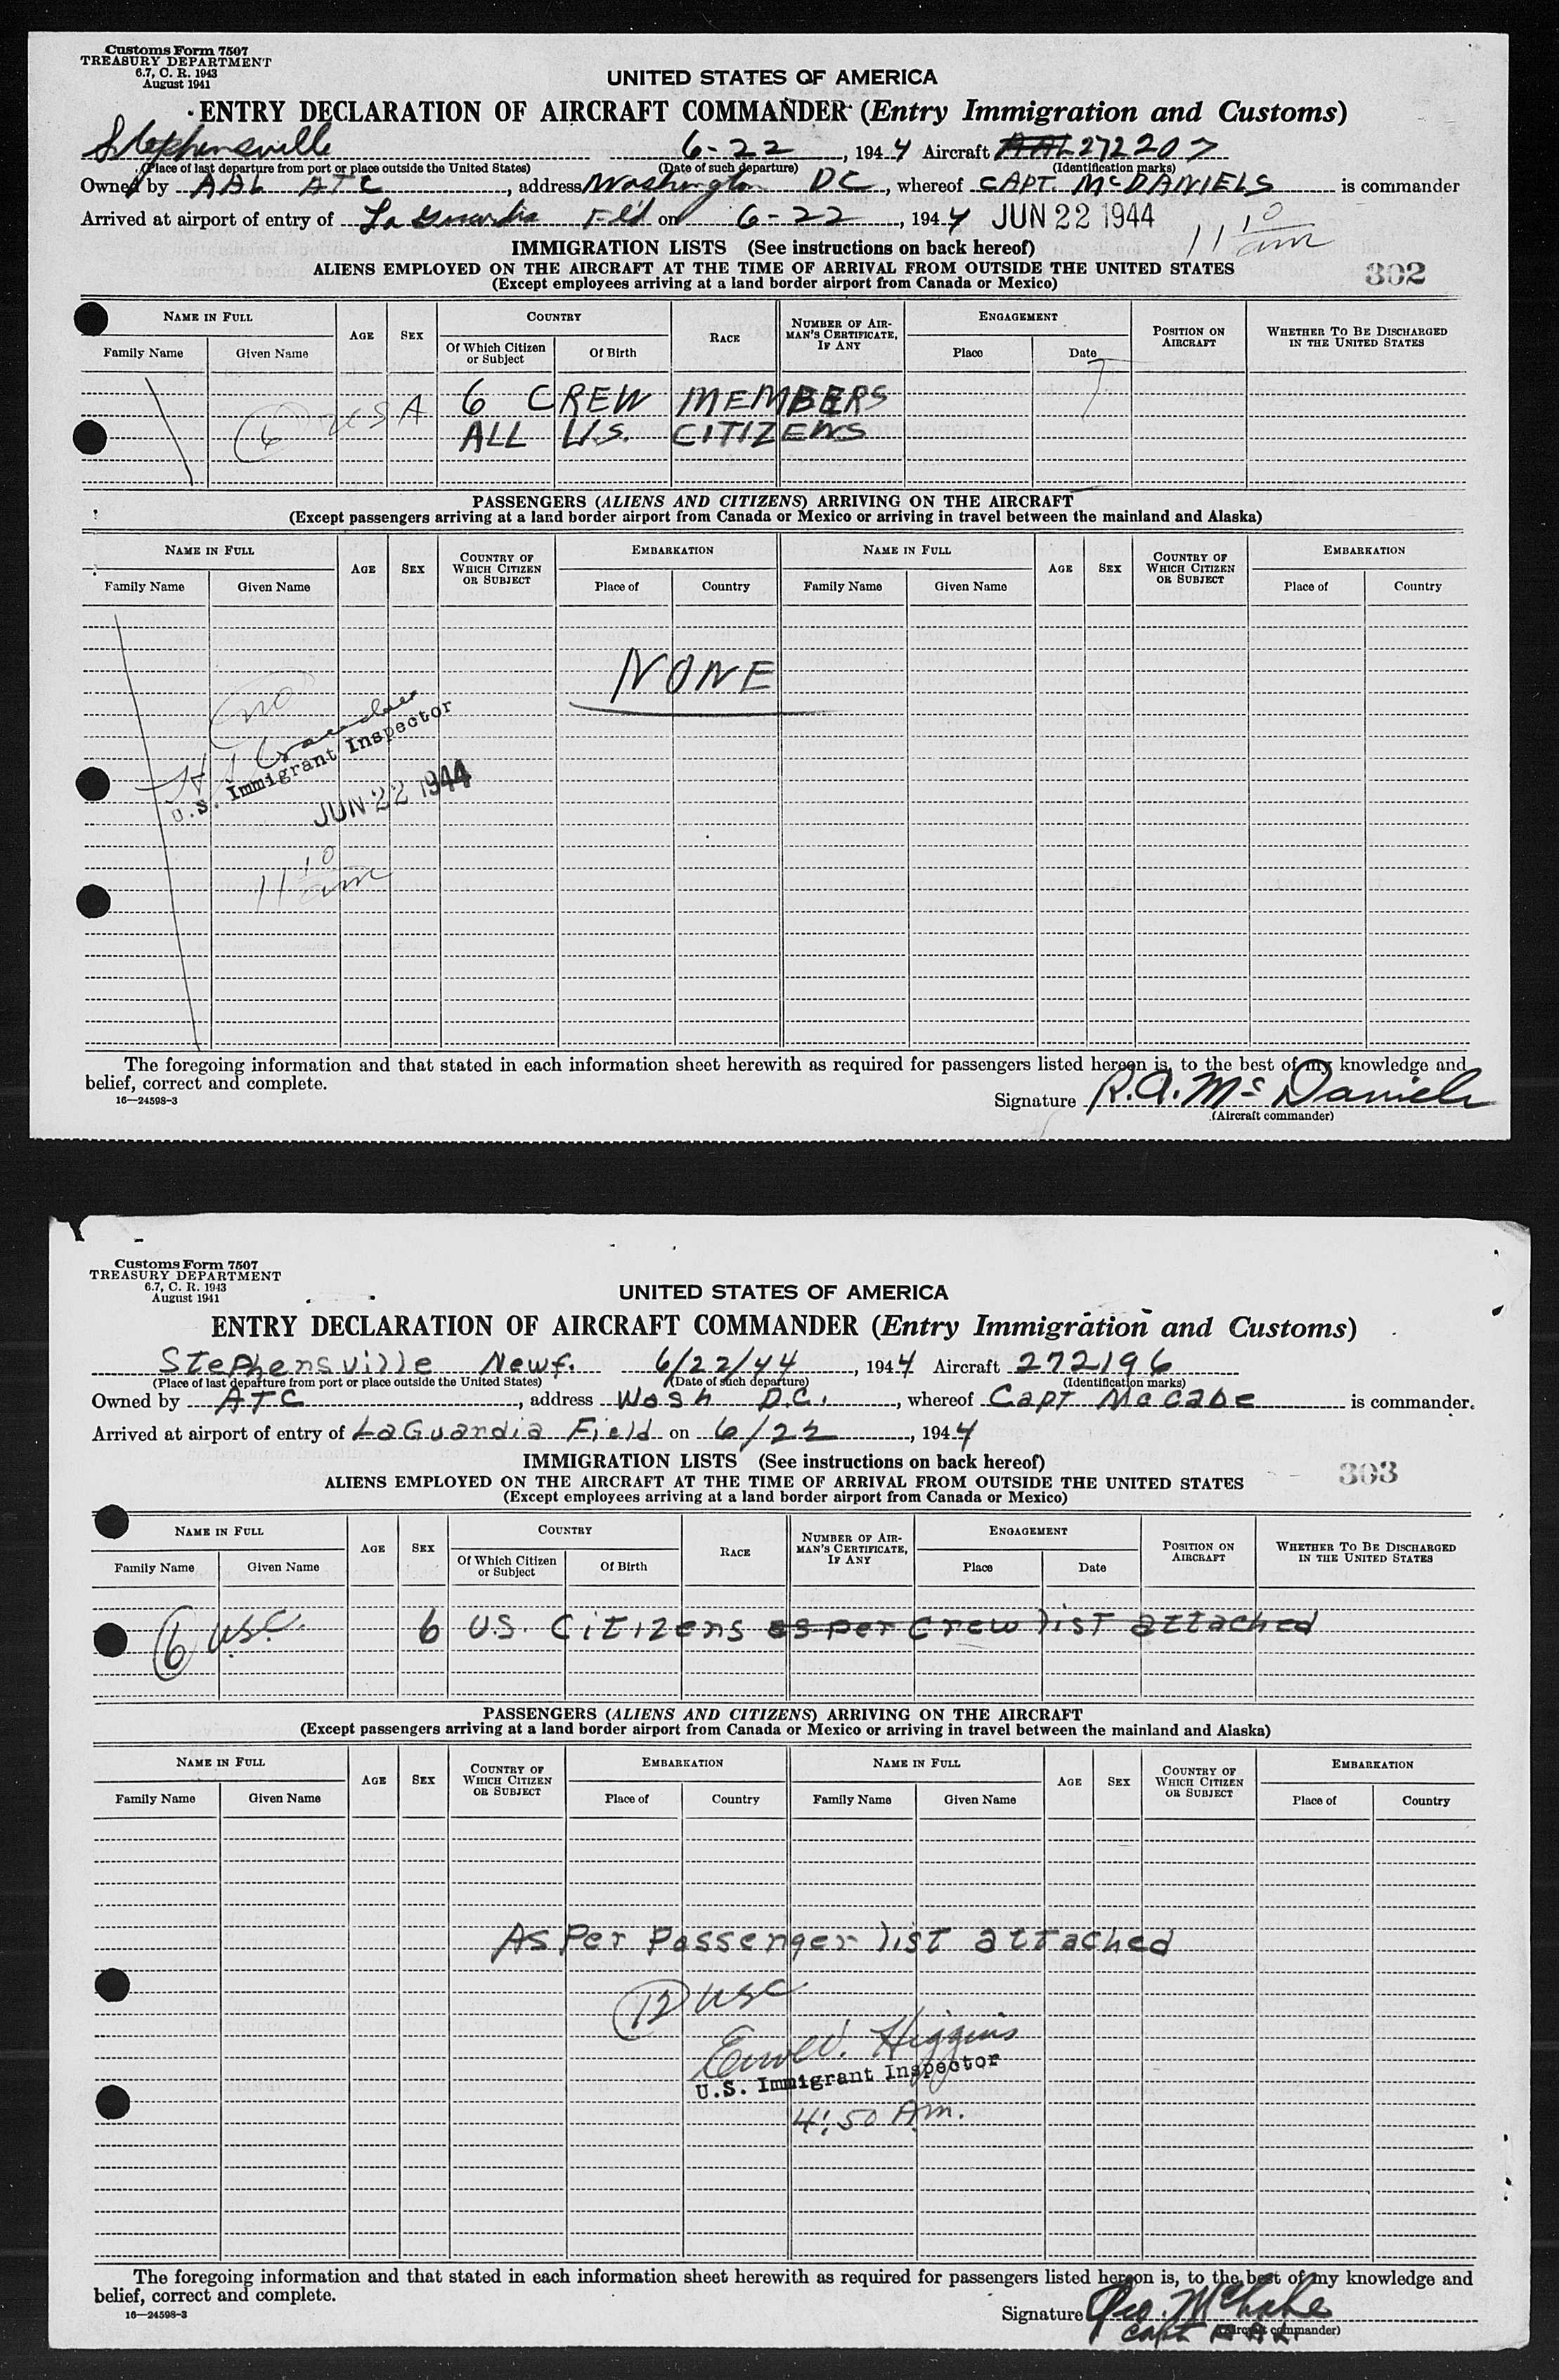 Customs Form 7507
TREASURY DEPARTMENT
6.7, C. R. 1943
August 1941
UNITED STATES OF AMERICA
ENTRY DECLARATION OF AIRCRAFT COMMANDER (Entry Immigration and Customs)
Stephensville 6-22, 1944 Aircraft AAL 272207
(Place of last departure from port or place outside the United States) (Date of such departure) (Identification marks)
Owned by AAL ATC, address Washington DC, whereof CAPT. McDANIELS is commander
Arrived at airport of entry of La Guardia Fld on 6-22, 1944 JUN 22 1944 11 10 am
IMMIGRATION LISTS (See instructions on back hereof)
ALIENS EMPLOYED ON THE AIRCRAFT AT THE TIME OF ARRIVAL FROM OUTSIDE THE UNITED STATES
302
(Except employees arriving at a land border airport from Canada or Mexico)
NAME IN FULL AGE SEX COUNTRY RACE NUMBER OF AIRMAN'S CERTIFICATE, IF ANY ENGAGEMENT POSITION ON AIRCRAFT WHETHER TO BE DISCHARGED IN THE UNITED STATES
Family Name Given Name Of Which Citizen or Subject Of Birth Place Date
6 CREW MEMBERS
6 USA
ALL U.S. CITIZENS
PASSENGERS (ALIENS AND CITIZENS) ARRIVING ON THE AIRCRAFT
(Except passengers arriving at a land border airport from Canada or Mexico or arriving in travel between the mainland and Alaska)
NAME IN FULL AGE SEX COUNTRY OF WHICH CITIZEN OR SUBJECT EMBARKATION NAME IN FULL AGE SEX COUNTRY OF WHICH CITIZEN OR SUBJECT EMBARKATION
Family Name Given Name Place of Country Family Name Given Name Place of Country
NONE
no
U.S. Immigrant Inspector
JUN 22 1944
11 10 am
The foregoing information and that stated in each information sheet herewith as required for passengers listed hereon is, to the best of my knowledge and
belief, correct and complete.
16—24598-3
Signature R.A. McDaniels
(Aircraft commander)
Customs Form 7507
TREASURY DEPARTMENT
6.7, C. R. 1943
August 1941
UNITED STATES OF AMERICA
ENTRY DECLARATION OF AIRCRAFT COMMANDER (Entry Immigration and Customs)
Stephensville Newf. 6/22/44, 1944 Aircraft 272196
(Place of last departure from port or place outside the United States) (Date of such departure) (Identification marks)
Owned by ATC, address Wash D.C., whereof Capt McCabe is commander.
Arrived at airport of entry of LaGuardia Field on 6/22, 1944
IMMIGRATION LISTS (See instructions on back hereof)
303
ALIENS EMPLOYED ON THE AIRCRAFT AT THE TIME OF ARRIVAL FROM OUTSIDE THE UNITED STATES
(Except employees arriving at a land border airport from Canada or Mexico)
NAME IN FULL AGE SEX COUNTRY RACE NUMBER OF AIRMAN'S CERTIFICATE, IF ANY ENGAGEMENT POSITION ON AIRCRAFT WHETHER TO BE DISCHARGED IN THE UNITED STATES
Family Name Given Name Of Which Citizen or Subject Of Birth Place Date
6 usc. 6 U.S. Citizens as per Crew list attached
PASSENGERS (ALIENS AND CITIZENS) ARRIVING ON THE AIRCRAFT
(Except passengers arriving at a land border airport from Canada or Mexico or arriving in travel between the mainland and Alaska)
NAME IN FULL AGE SEX COUNTRY OF WHICH CITIZEN OR SUBJECT EMBARKATION NAME IN FULL AGE SEX COUNTRY OF WHICH CITIZEN OR SUBJECT EMBARKATION
Family Name Given Name Place of Country Family Name Given Name Place of Country
As Per Passenger list attached
12 usc
Higgins
U.S. Immigrant Inspector
4:50 Am.
The foregoing information and that stated in each information sheet herewith as required for passengers listed hereon is, to the best of my knowledge and
belief, correct and complete.
16—24598-3
Signature Geo. McCabe
Capt AAL
(Aircraft commander)